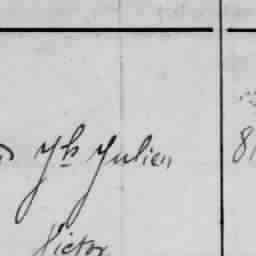 Jh Julien 8
Victor